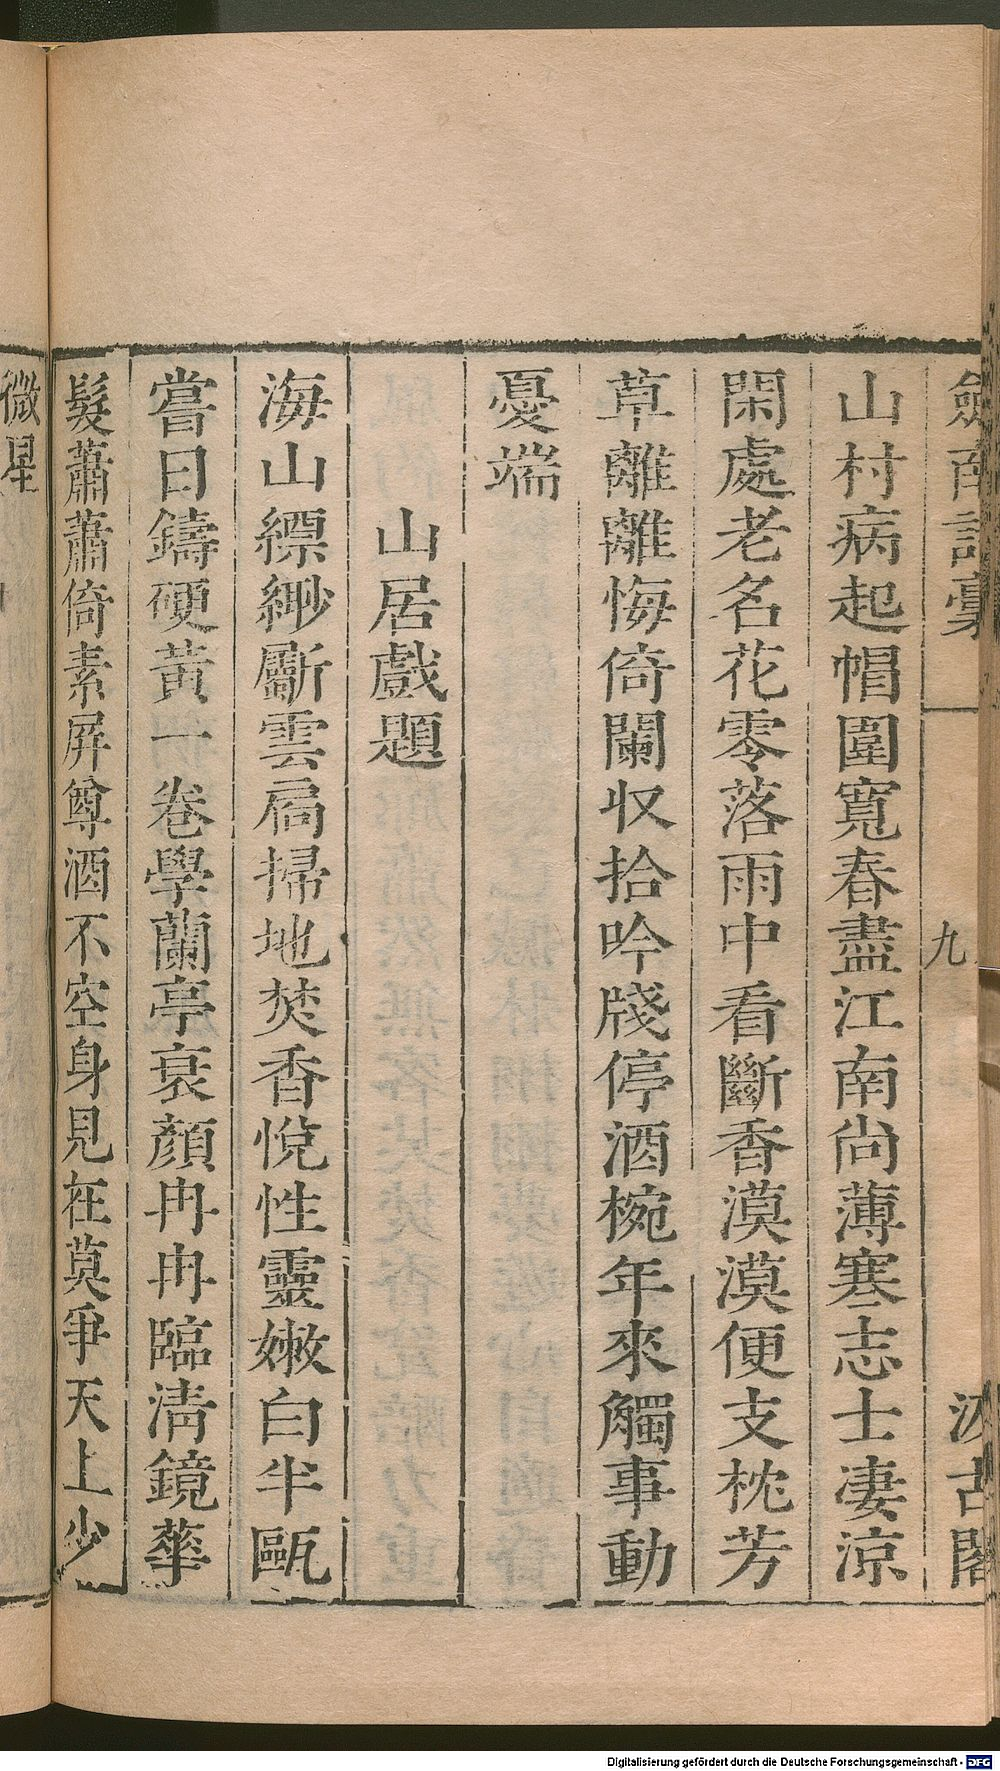 劒南詩稾 九 汲古閣
山村病起帽圍寬春盡江南尚薄寒志士凄涼
閑處老名花零落雨中看斷香漠漠便支枕芳
草離離悔倚闌収拾吟牋停酒椀年來觸事動
憂端
山居戲題
海山縹緲斸雲扃掃地焚香悅性靈嫩白半甌
嘗日鑄硬黃一卷學蘭亭衰顏冉冉臨清鏡華
髮蕭蕭倚素屏尊酒不空身見在莫爭天上少
微星
Digitalisierung gefördert durch die Deutsche Forschungsgemeinschaft - DFG